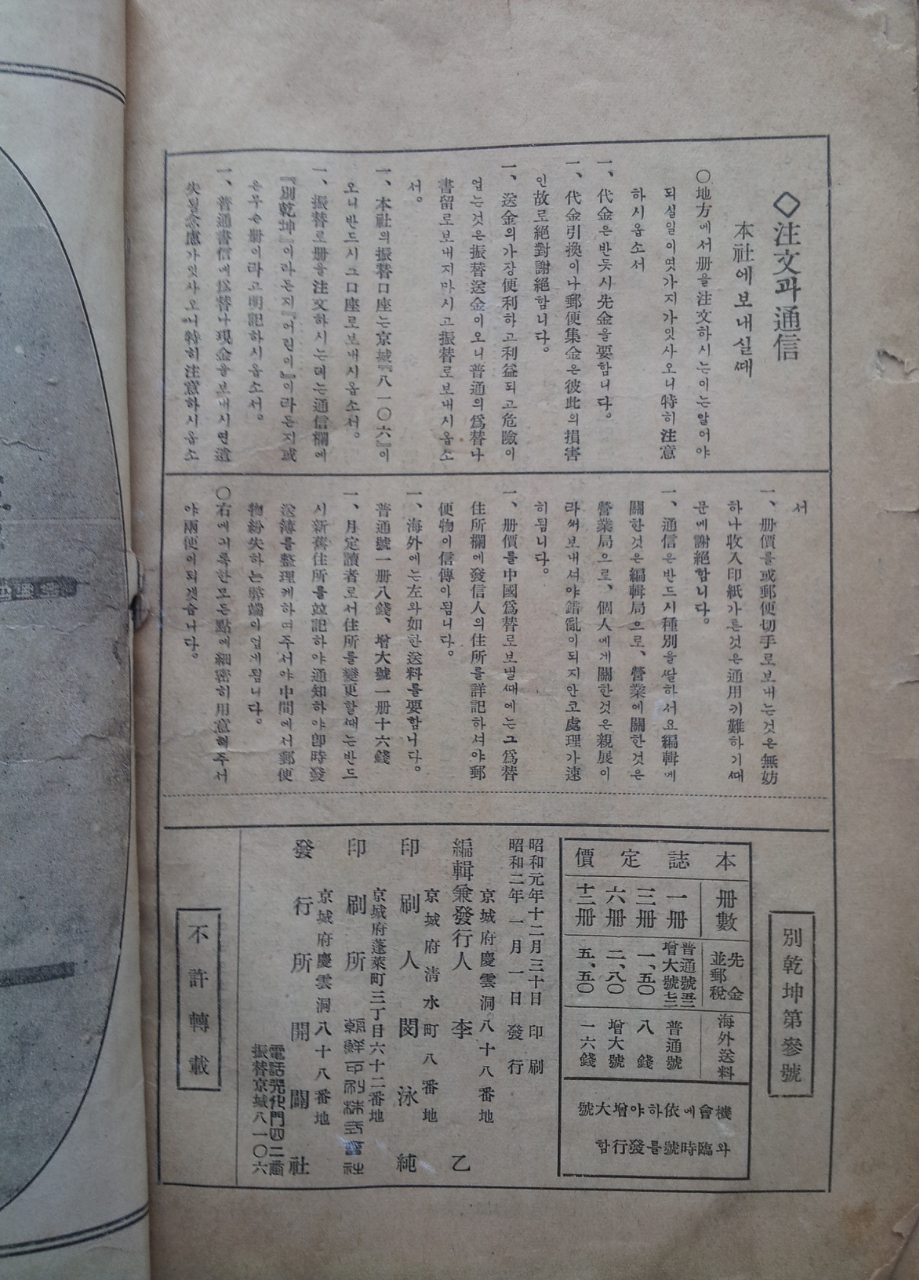 ◇注文과通信
本社에보내실때
○地方에서册을注文하시는이는알어야
되실일이몃가지가잇사오니特히注意
하시옵소서
一、代金은반듯시先金을要합니다。
一、代金引換이나郵便集金은彼此의損害
인故로絕對謝絕합니다。
一、送金의가장便利하고利益되고危險이
업는것은振替送金이오니普通의爲替나
書留로보내지마시고振替로보내시옵소
서。
一、本社의振替口座는京城『八一〇六』이
오니반드시그口座로보내시옵소서。
一、振替로册을注文하시는데는通信欄에
『別乾坤』이라든지『어린이』이라든지或
은무슨册이라고明記하시옵소서。
一、普通書信에爲替나現金을보내시면遺
失될念慮가잇사오니特히注意하시옵소
서
一、册價를或郵便切手로보내는것은無妨
하나收入印紙가튼것은通用키難하기때
문에謝絕합니다。
一、通信은반드시種別을딸하서요編輯에
關한것은編輯局으로、營業에關한것은
營業局으로、個人에게關한것은親展이
라써보내셔야錯亂이되지안코處理가速
히됩니다。
一、册價를中國爲替로보낼때에는그爲替
住所欄에發信人의住所를詳記하셔야郵
便物이信傳아됨니다。
一、海外에는左와如한送料를要합니다。
普通號一册八錢、增大號一册十六錢
一、月定讀者로서住所를變更할때는반드
시新舊住所를竝記하야通知하야卽時發
送簿를整理케하여주서야中間에서郵便
物紛失하는弊端이업게됩니다。
○右에긔록한모든點에細密히用意해주서
야兩便이되겟습니다。
別乾坤第參號
本誌定價
册數 先金並郵稅 海外送料
一册 普通號 增大號 普通號
三册 一、五〇 八錢
六册 二、八〇 增大號
十二册 五、五〇 一六錢
機會에依하야增大號
와臨時號를發行함
昭和元年十二月三十日 印刷
昭和二年一月一日 發行
京城府慶雲洞八十八番地
編輯兼發行人 李 乙
京城府淸水町八番地
印刷人 閔泳純
京城府蓬萊町三丁目六十二番地
印刷所 朝鮮印刷株式會社
京城府慶雲洞八十八番地
發行所 開闢社
電話光化門四二番
振替京城八一〇六
不許轉載